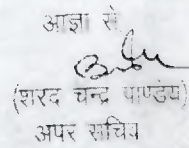 आज्ञा से
(शरद चन्द्र पाण्डेय)
अपर सचिव